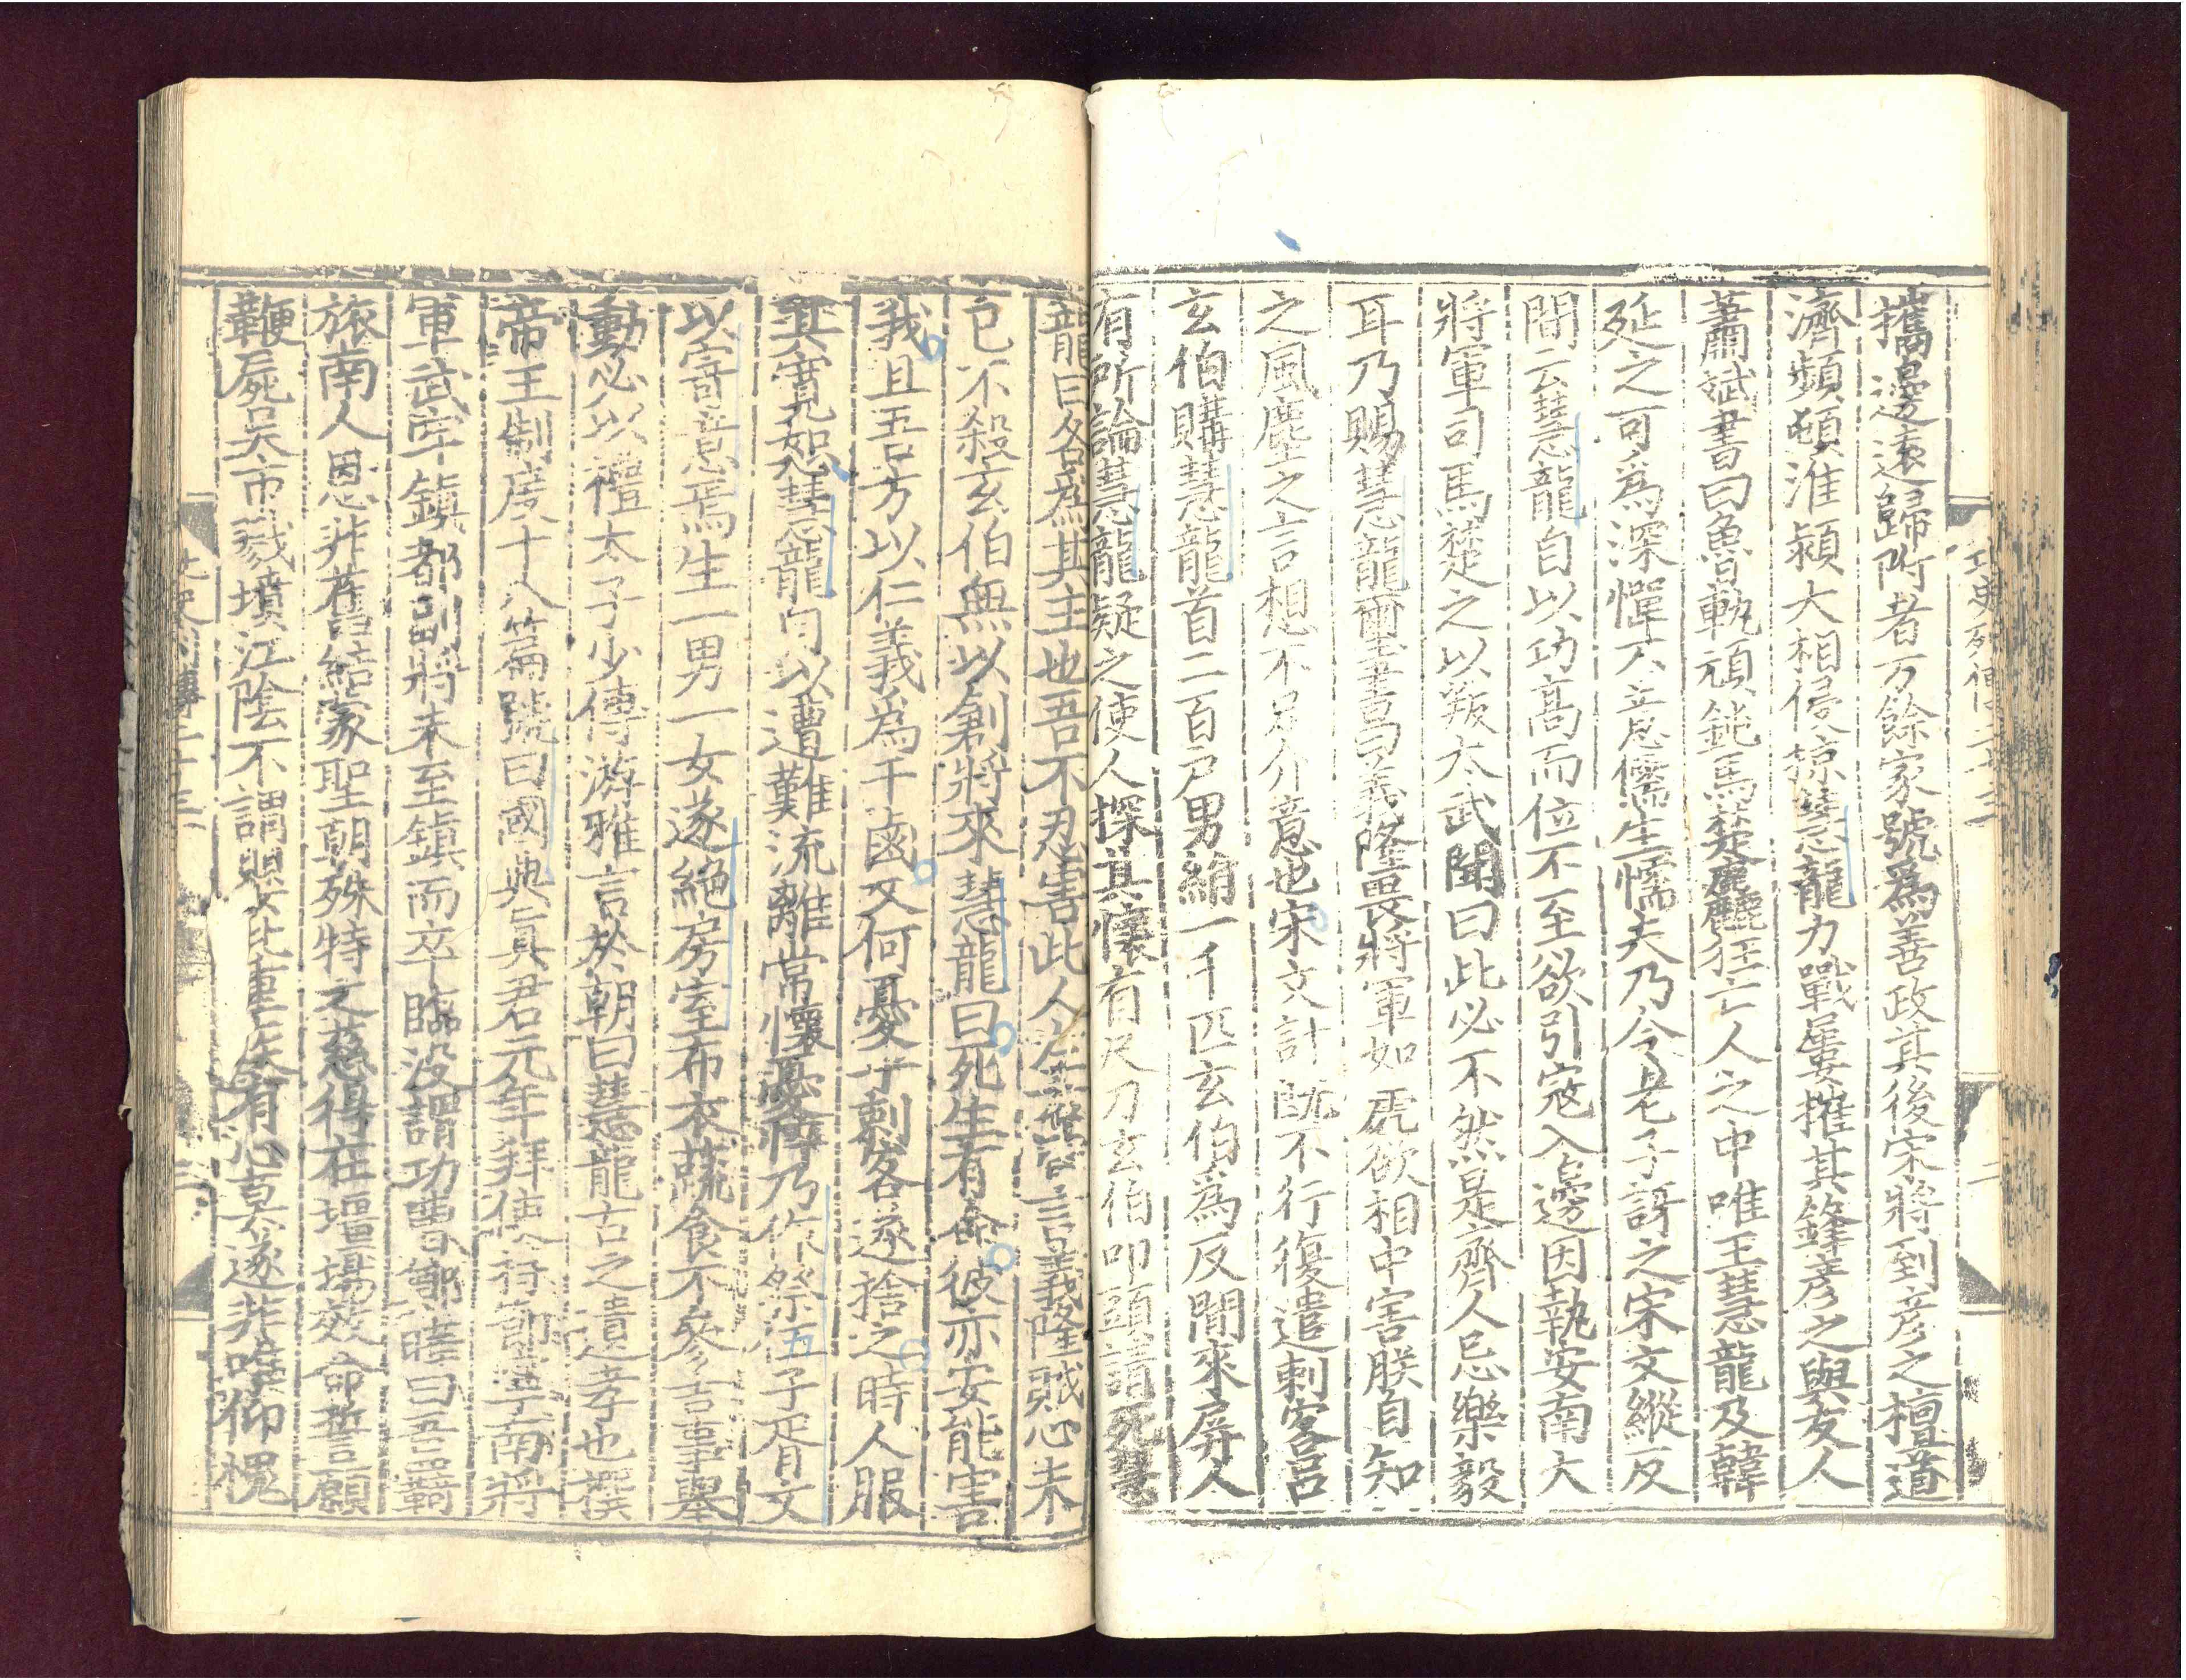 北史列傳二十三
二
攜邊遠歸附者万餘家號爲善政其後宋將到彦之檀道
濟頻頓淮潁大相侵掠慧龍力戰屢摧其鋒彦之與友人
蕭斌書曰魯軌頑鈍馬楚麁麤狂亡人之中唯王慧龍及韓
延之可為深憚不意儒生懦夫乃令老子訝之宋文縱反
間云慧龍自以功高而位不至欲引寇入邊因執安南大
將軍司馬楚之以叛太武聞曰此必不然是齊人忌樂毅
耳乃賜慧龍璽書曰義隆畏將軍如虎欲相中害朕自知
之風塵之言想不足介意也宋文計既不行復遣刺客呂
玄伯購慧龍首二百户男絹一千匹玄伯為反間來屏人
有所論慧龍疑之使人探其懷有尺刀玄伯叩頭請死慧
龍曰各為其主也吾不忍害此人左右皆言義隆賊心未
已不殺玄伯無以創將來慧龍曰死生有命彼亦安能害
我且吾方以仁義為干鹵又何憂乎刺客遂捨之時人服
其寛恕慧龍自以遭難流離常懷憂悴乃作祭伍子胥文
以寄意焉生一男一女遂絶房室布衣蔬食不參吉事舉
動必以禮太子少傅游雅言於朝曰慧龍古之遺孝也撰
帝王制度十八篇號曰國典真君元年拜使持節寧南將
軍武牢鎮都副將未至鎮而卒臨没謂功曹鄭曄曰吾羇
旅南人恩非舊結蒙聖朝殊特之慈得在壃場效命誓願
鞭屍吳市戮墳江陰不謂嬰此重疾有心莫遂非唯仰愧
北史列傳二十三
二